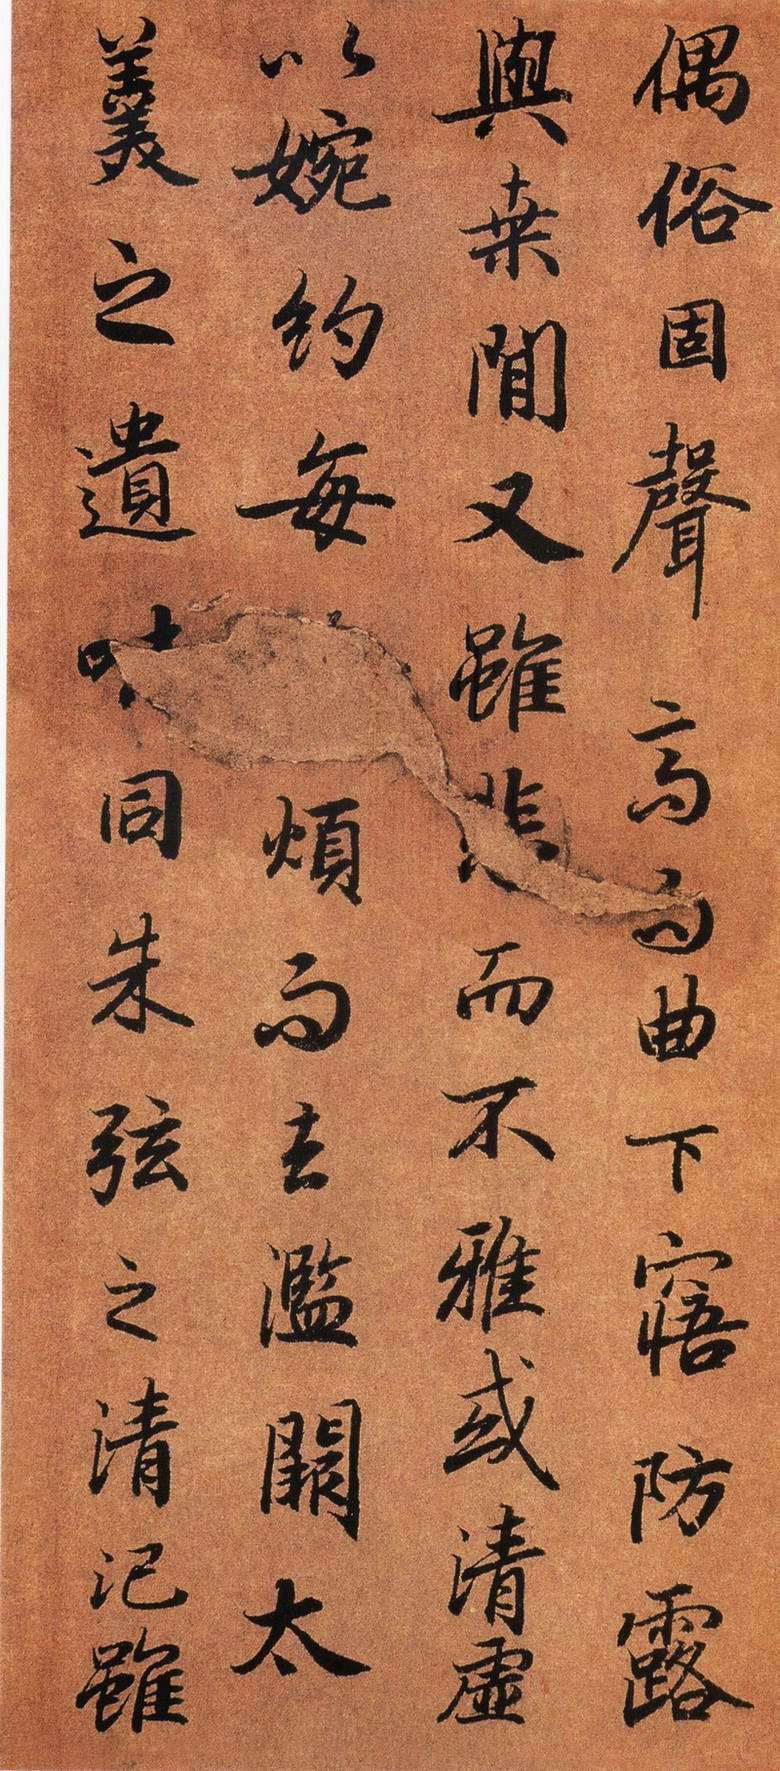 偶俗固聲高而曲下寤防露
與桒間又雖悲而不雅或清虛
以婉約每煩而去濫闕太
羹之遺味同朱弦之清氾雖